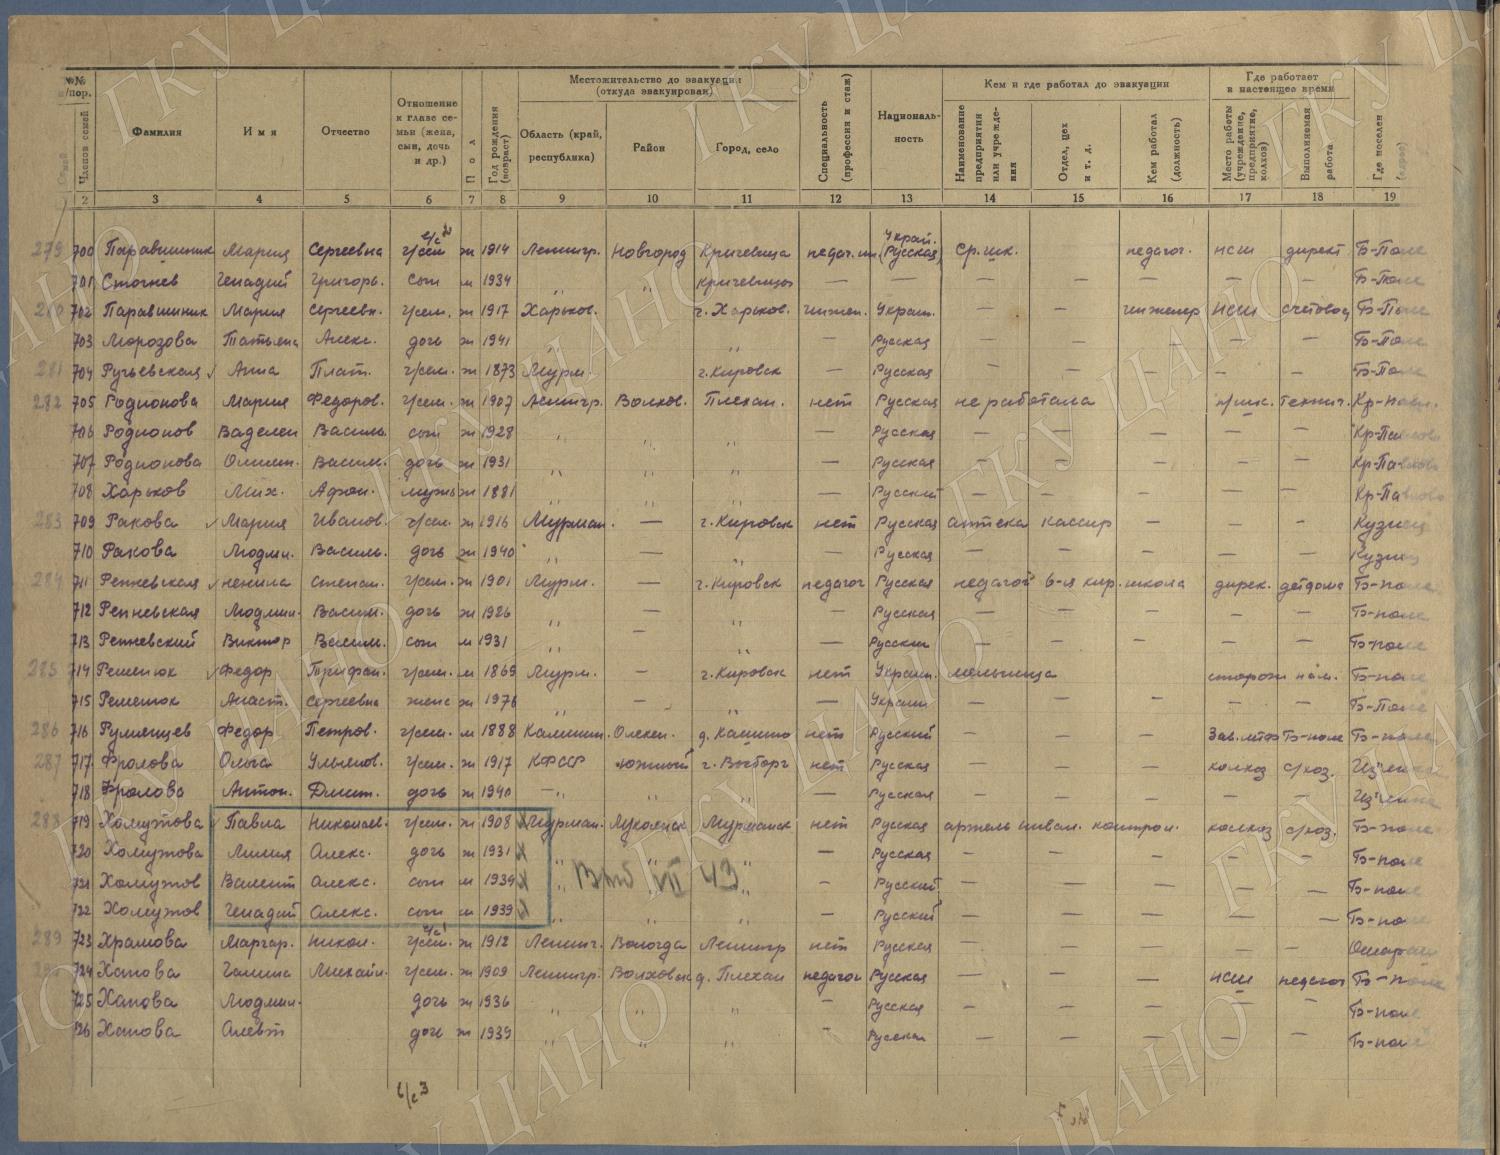 №№ п/пор.
Членов семей
Фамилия
Имя
Отчество
Отношение к главе семьи (жена, сын, дочь и др.)
Пол
Год рождения (возраст)
Местожительство до эвакуации (откуда эвакуирован)
Область (край, республика)
Район
Город, село
Специальность (профессия и стаж)
Национальность
Кем и где работал до эвакуации
Наименование предприятия или учреждения
Отдел, цех и т. д.
Кем работал (должность)
Где работает в настоящее время
Место работы (учреждение, предприятие, колхоз)
Выполняемая работа
Где поселен (адрес)
2 3 4 5 6 7 8 9 10 11 12 13 14 15 16 17 18 19
279 700 Паравшиник Мария Сергеевна г/сем ж 1914 Ленингр. Новгород Кричевица педагог. Украй. (Русская) ср. шк. педагог. нсш директ Б-Поле
701 Стогнев Генадий Григорь. сын м 1934 " " Кричевицы — — — — — — Б-Поле
280 702 Паравшиник Мария Сергеевн. г/сем. ж 1917 Харьков. г. Харьков. инжен. Украин. — — инженер нсш счетовод Б-Поле
703 Морозова Татьяна Алекс. дочь ж 1941 " " — Русская — — — — — Б-Поле
281 704 Ругьевская Анна Плат. г/сем. ж 1873 Мурм. г. Кировск — Русская — — — — — Б-Поле
282 705 Родионова Мария Федоров. г/сем. ж 1907 Ленингр. Волхов. Плехан. нет Русская не работала н/шк. технич. Кр-Павл.
706 РодионовВаделен Василь. сын ж 1928 " " " — Русская — — — — — Кр-Павлово
707 Родионова Олимп. Васил. дочь ж 1931 " " " — Русская — — — — — Кр-Павлово
708 Харьков Мих. Афон. мужь ж 1881 " " " — Русский — — — — — Кр-Павлово
283 709 Ракова Мария Иванов. г/сем. ж 1916 Мурман. — г. Кировск нет Русская аптека кассир — — — Кузнец
710 Ракова Людми. Василь. дочь ж 1940 " — " — Русская — — — — — Кузнец
284 711 Репневская ненила степан. г/сем. ж 1901 Мурм. — г. Кировск педагог Русская педагог 6-я кир. школа дирек. детдома Б-поле
712 Репневская Людмил. Васил. дочь ж 1926 " — " — Русская — — — — — Б-поле
713 Репневский Виктор Василь. сын м 1931 " — " — Русский — — — — — Б-поле
285 714 Ременюк Федор Трифан. г/сем. м 1869 Мурм. — г. Кировск нет Украин. мельница сторож Б-поле
715 Ременюк Анаст. Сергеевна жена ж 1976 " — " — Украин — — — — — Б-Поле
286 716 Румянцев Федор Петров. г/сем. м 1888 Калинин. Оленин. д. Кашино нет Русский — — — Зав. мтф Б-поле Б-поле
287 717 Фролова Ольга Ульянов. г/сем. ж 1917 КФССР южный г. Выборг нет Русская — — — колхоз с/хоз.
718 Фролова Антон. Дмит. дочь ж 1940 — " " " — Русская — — — — —
288 719 Хомутова Павла Николаев. г/сем. ж 1908 Мурман. Мурманск нет Русская артель инвал. контрол. колхоз с/хоз. Б-поле
720 Хомутова Лилия Алекс. дочь ж 1931 " " " — Русская — — — — — Б-поле
721 Хомутов Валент Алекс. сын м 1934 " " — Русский — — — — — Б-поле
Выб VII 43
722 Хомутов Генадий Алекс. сын м 1939 " " " — Русский — — — — Б-поле
289 723 Храмова Маргар. Никол. г/сем. ж 1912 Ленинг. Вологда Ленингр нет Русская — — — — —
724 Хапова Галина Михайл. г/сем. ж 1909 Ленингр. Волховск д. Плехан педагог Русская — — — нсш педагог Б-поле
725 Хапова Людмил. дочь ж 1936 " " " — Русская — — — — — Б-поле
726 Хапова Алевт дочь ж 1939 " " " — Русская — — — — — Б-поле
с/с 3
ГКУ ЦАНО